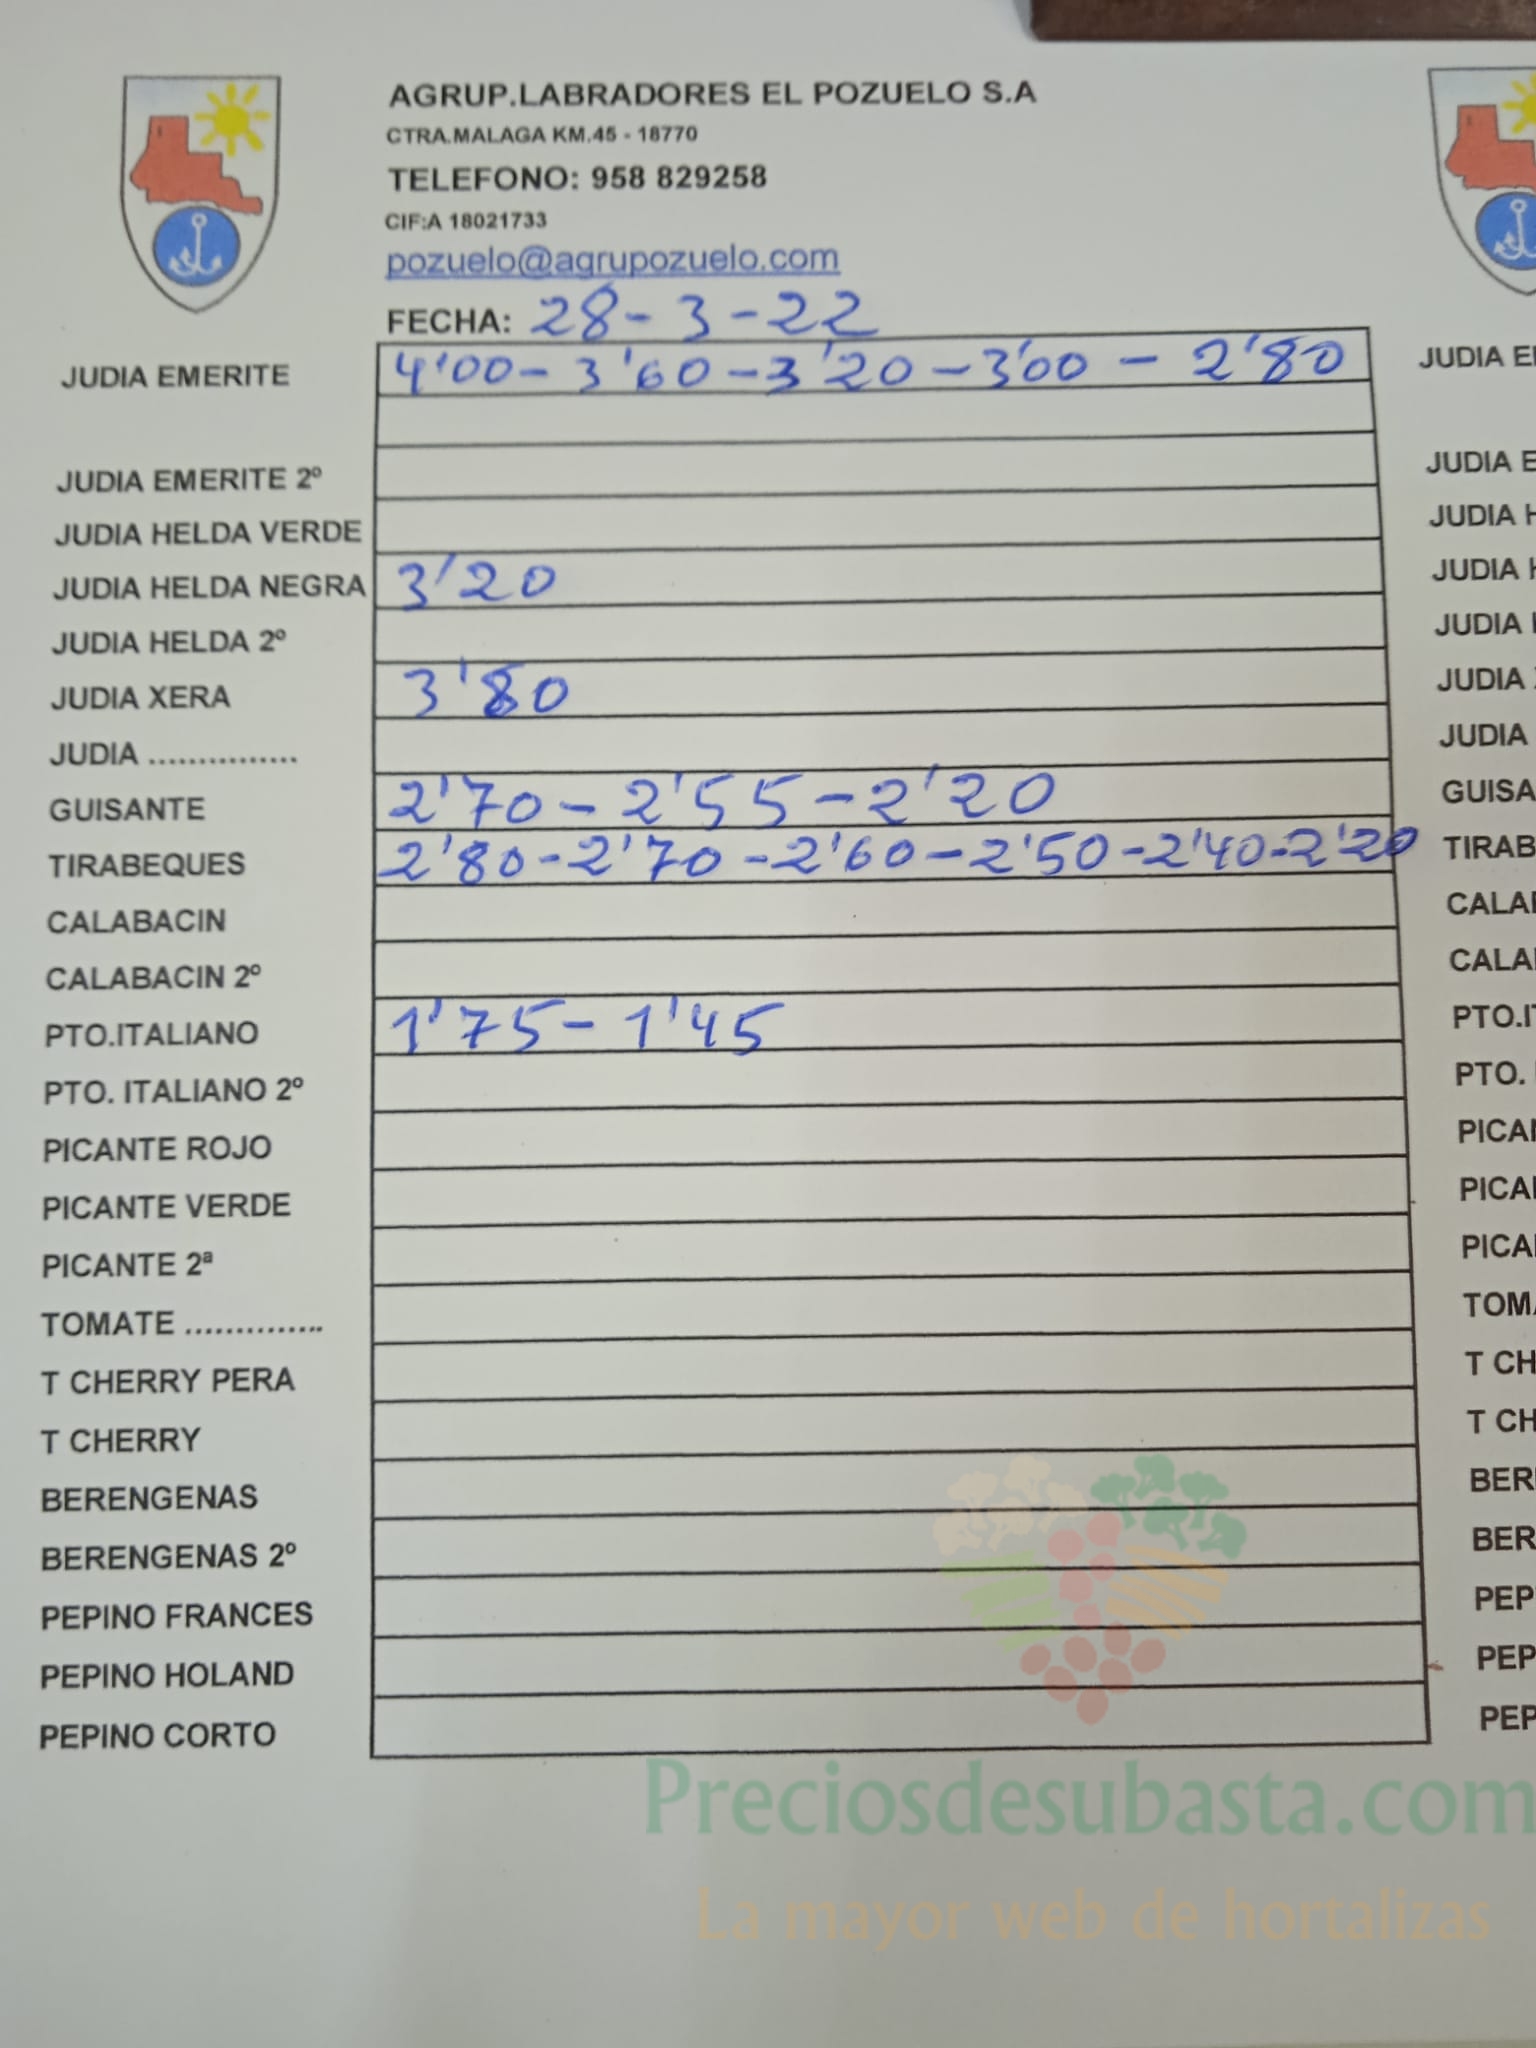 AGRUP.LABRADORES EL POZUELO S.A
CTRA.MALAGA KM.45 - 18770
TELEFONO: 958 829258
CIF:A 18021733
pozuelo@agrupozuelo.com
FECHA: 28-3-22
JUDIA EMERITE 4'00-3'60-3'20-3'00-2'80
JUDIA EMERITE 2º
JUDIA HELDA VERDE
JUDIA HELDA NEGRA 3'20
JUDIA HELDA 2º
JUDIA XERA 3'80
JUDIA ...............
GUISANTE 2'70-2'55-2'20
TIRABEQUES 2'80-2'70-2'60-2'50-2'40-2'20
CALABACIN
CALABACIN 2º
PTO.ITALIANO 1'75-1'45
PTO. ITALIANO 2º
PICANTE ROJO
PICANTE VERDE
PICANTE 2ª
TOMATE ..............
T CHERRY PERA
T CHERRY
BERENGENAS
BERENGENAS 2º
PEPINO FRANCES
PEPINO HOLAND
PEPINO CORTO
JUDIA
JUDIA
JUDIA
JUDIA
JUDIA
JUDIA
JUDIA
PTO.
Preciosdesubasta.com
La mayor web de hortalizas